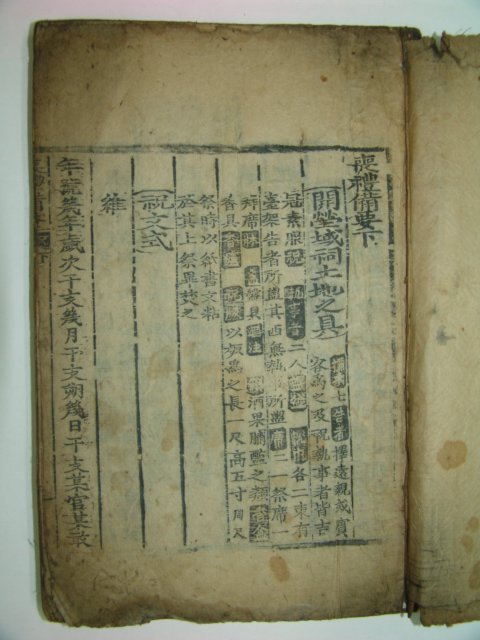 喪禮備要下
開塋域祠土地之具
告者 擇遠親或賓
客爲之及祝執事者皆吉
冠素服 祝 執事者 二人 盥盆 帨巾 各二東有
臺架告者所盥其西無 所盥 席 二一祭席一
拜席 具 酒注 酒果脯醢之類
香具 祝版 以板爲之長一尺高五寸周尺
祭時以紙書文粘
於其上祭畢焚之
祝文式
維
年號幾年歲次干支幾月干支朔幾日干支某官某敢